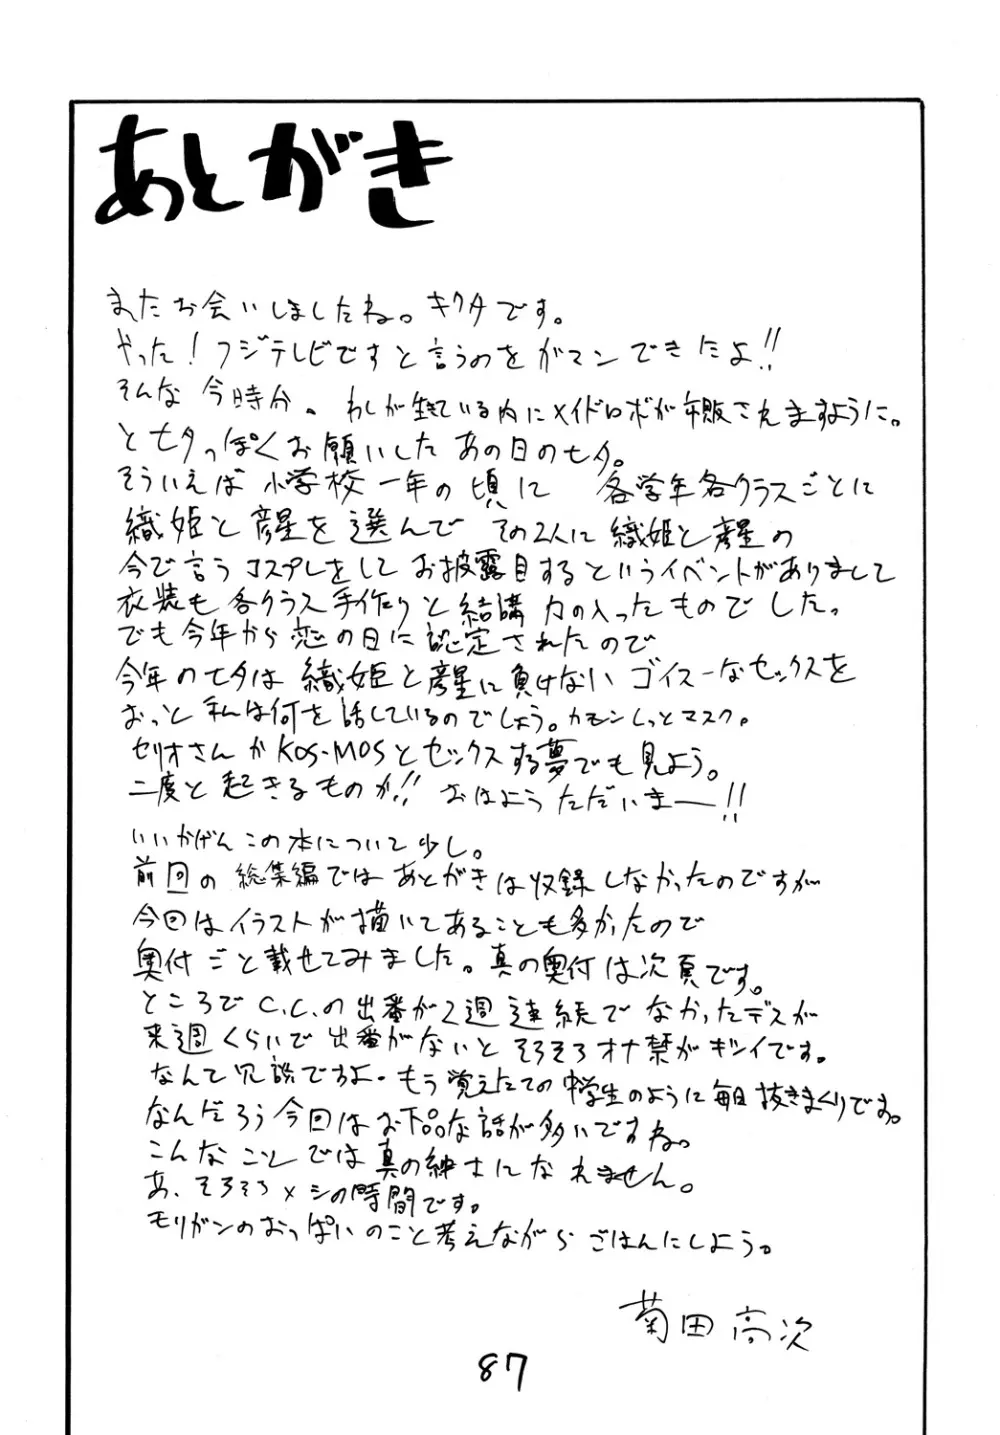 あとがき
またお会いしましたね。キクタです。
やった!フジテレビですと言うのをガマンできたよ!!
そんな今時分。わしが生きている内にメイドロボが市販されますように。
と七夕っぽくお願いしたあの日の七夕。
そういえば小学校一年の頃に 各学年各クラスごとに
織姫と彦星を選んで その2人に織姫と彦星の
今で言うコスプレをしてお披露目するというイベントがありまして
衣装も各クラス手作りと結構力の入ったものでした。
でも今年から恋の日に認定されたので
今年の七夕は織姫と彦星に負けないゴイスーなセックスを
おっと私は何を話しているのでしょう。カモンしっとマスク。
セリオさんかKOS-MOSとセックスする夢でも見よう。
二度と起きるものか!!おはようただいまー!!
いいかげんこの本について少し。
前回の総集編ではあとがきは収録しなかったのですが
今回はイラストが描いてあることも多かったので
奥付ごと載せてみました。真の奥付は次頁です。
ところでC.C.の出番が2週連続でなかったデスが
来週くらいで出番がないとそろそろオナ禁がキツイです。
なんて冗談ですよ。もう覚えたての中学生のように毎日抜きまくりです。
なんだろう今回はお下品な話が多いですね。
こんなことでは真の紳士になれません。
あ、そろそろメシの時間です。
モリガンのおっぱいのこと考えながらごはんにしよう。
菊田高次
87